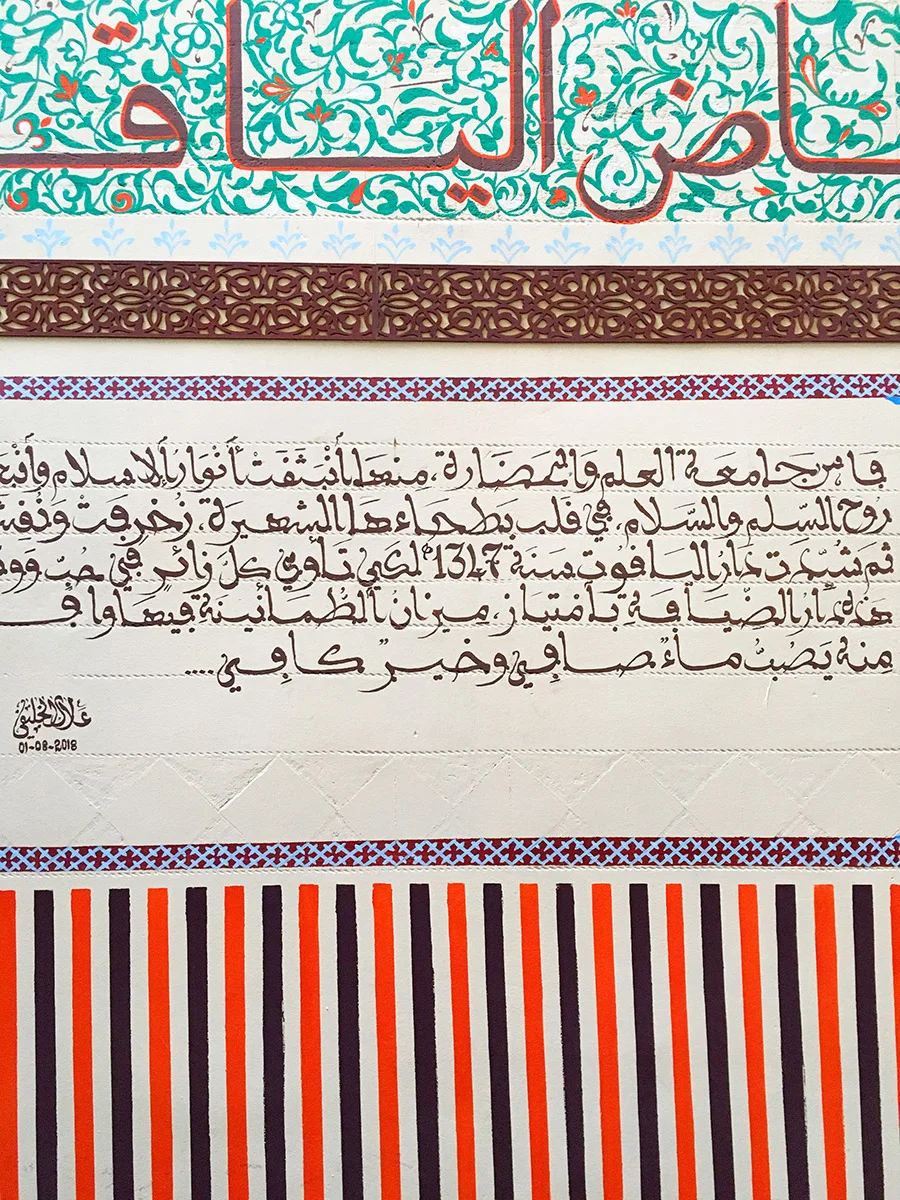 ـاض اليـاقـ
فاس جامعة العلم والحضارة، منها أنبثقت أنوار ألإسلام وأنبعـ
روح السّلم والسّلام، في قلب بطحاءها الشهيرة، زخرفت ونُقِشـ
ثم شُيّدت دار الياقوت سنة 1347ھ لكي تأوي كل زائرٍ في حبّ وو
هذه دار الضيافة بامتياز، ميزان ألطُمأنينة فيها وا
منه يَصُبُّ ماءٌ صافي وخيرٌ كافي....
علال الخليفي
01-08-2018